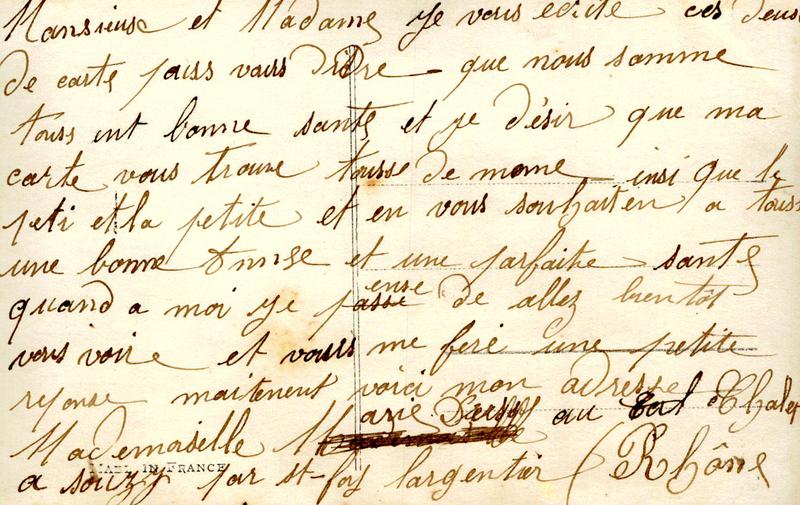 Mansieur et Madame je vous ecite ces deus
de carte pouss vous dire que nous somme
touss ent bonne sante et je désir que ma
carte vous trouve tousse de mome insi que le
peti et la petite et en vous souhaiten a tous
une bonne Annee et une parfaite sante
quand a moi je pense de allez bientot
vous voire et vouss me feré une petite
reponse maitenent voici mon adresse
Mademoiselle Marie au Thaler
a souzy par st-foy largentier (Rhône
MADE IN FRANCE